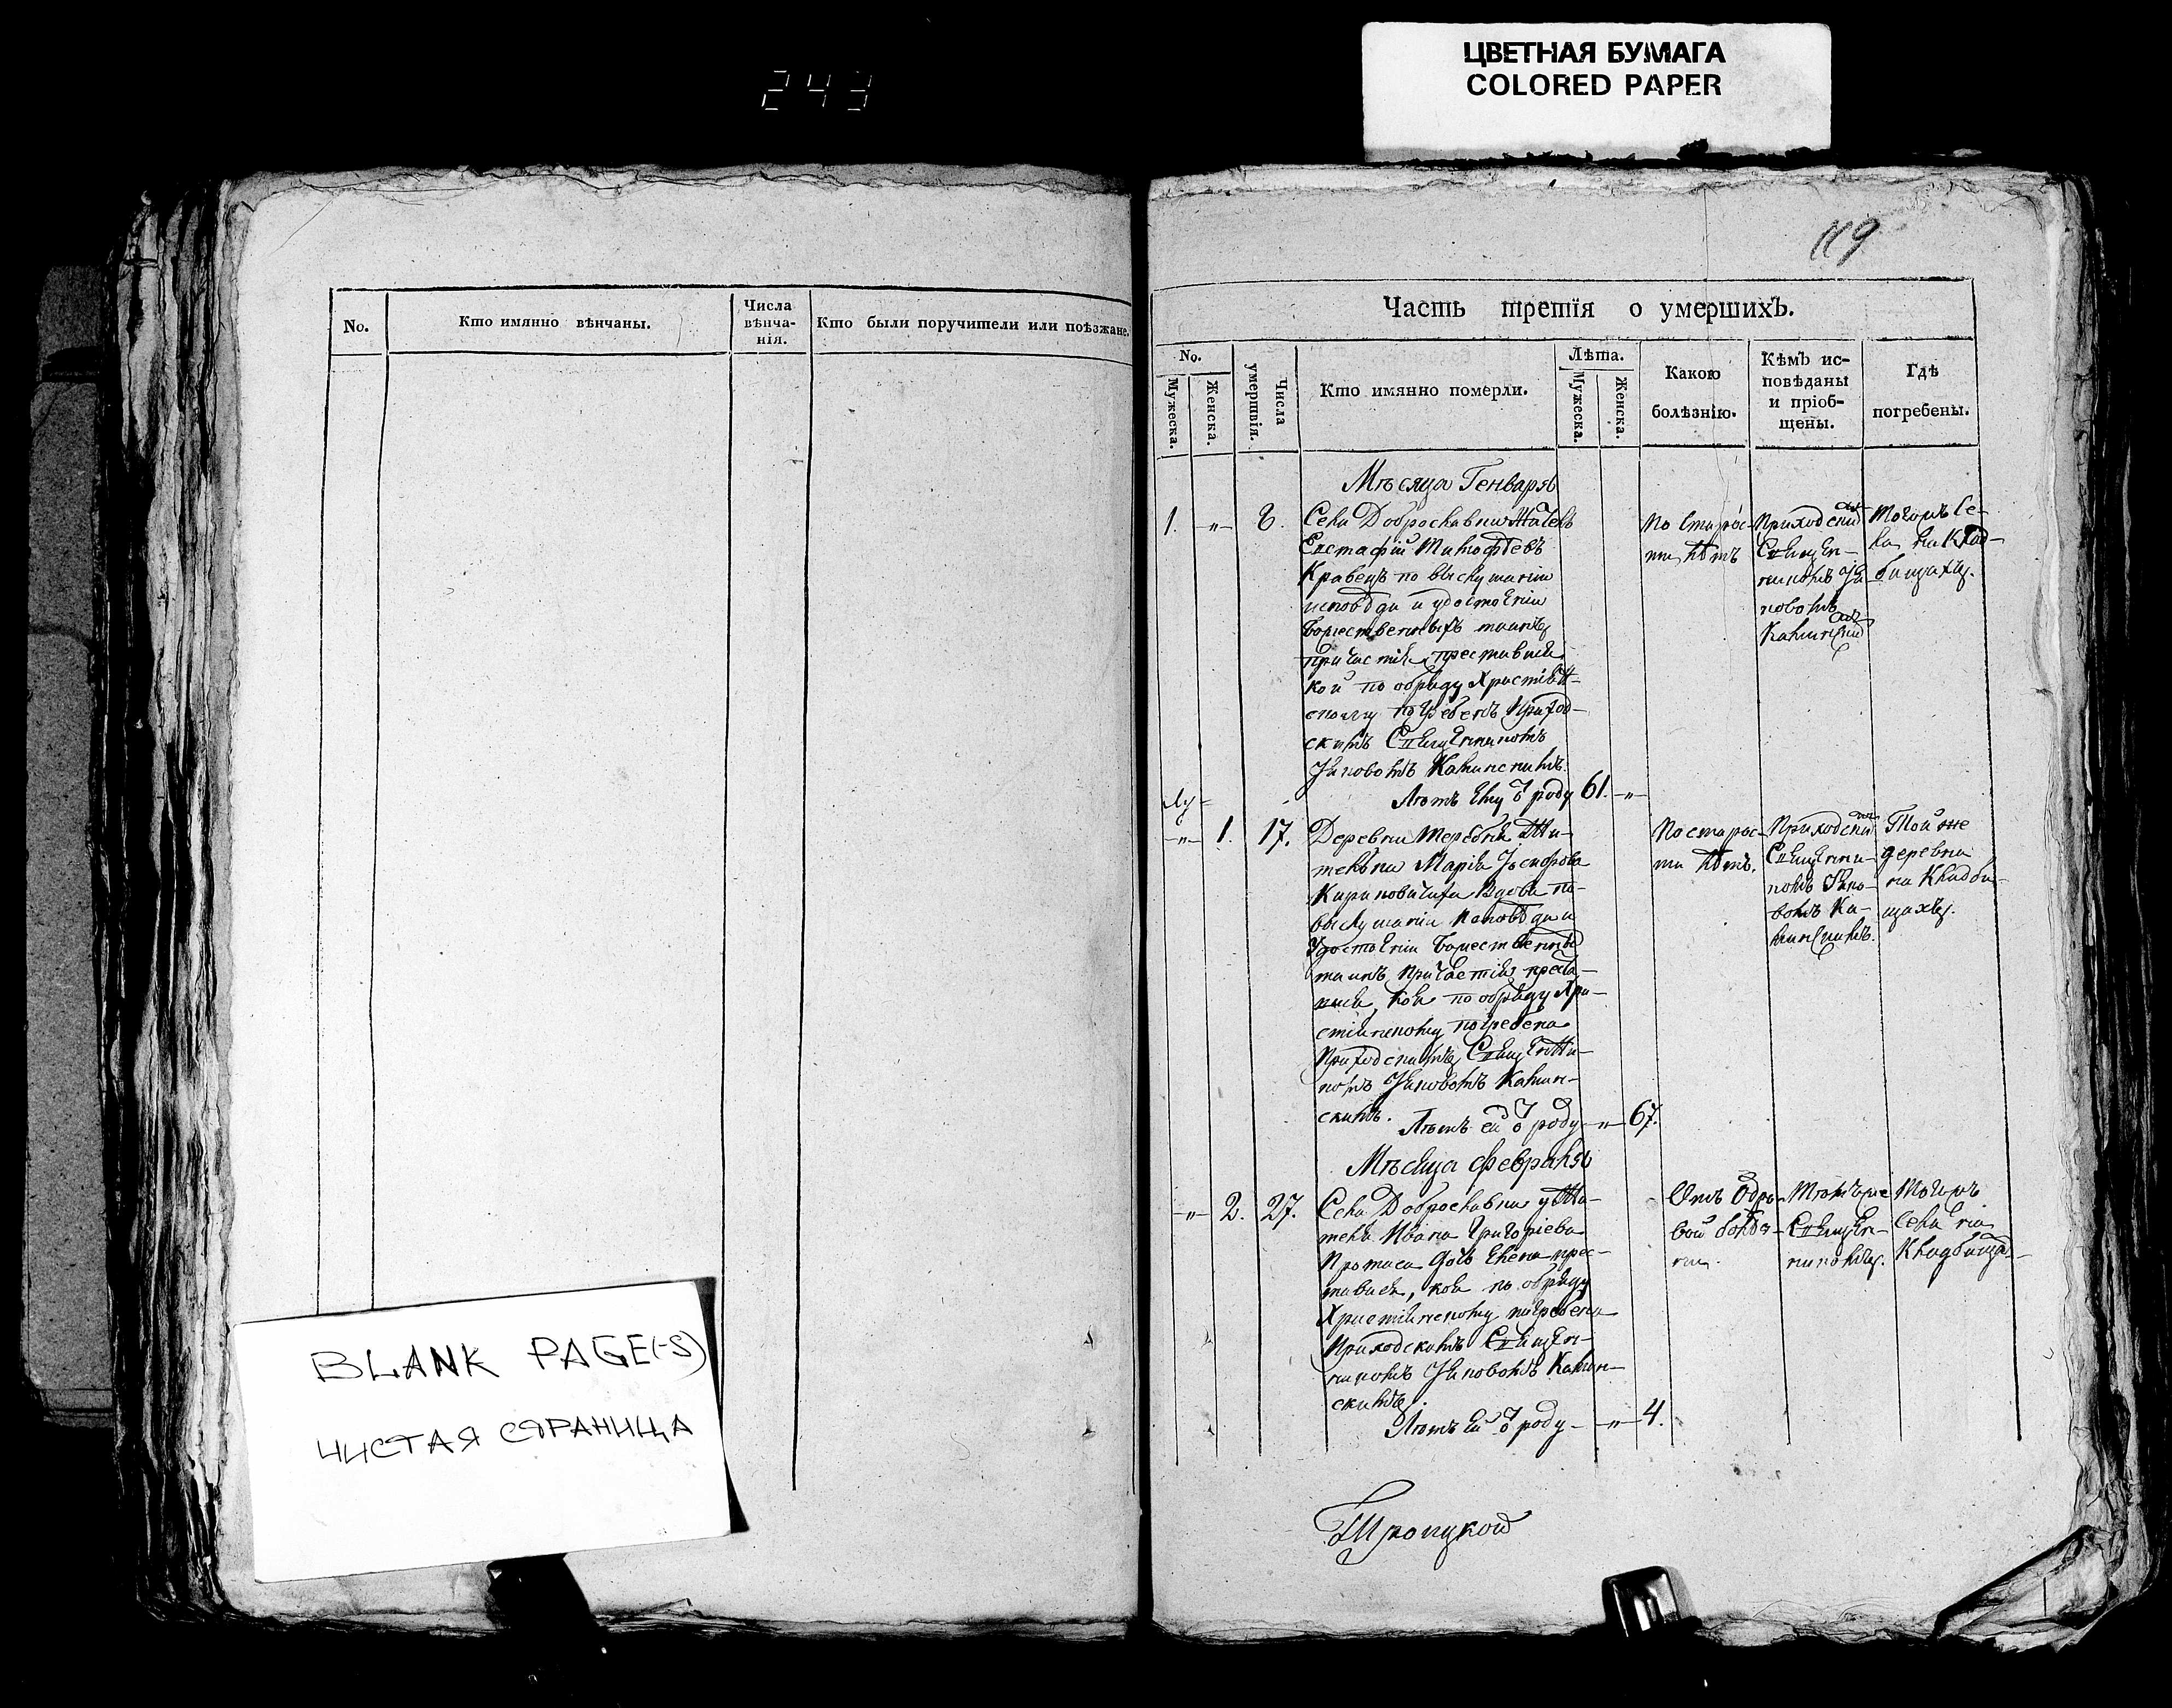 243
ЦВЕТНАЯ БУМАГА
COLORED PAPER
No.
Кто имянно вѣнчаны.
Числа
вѣнча-
нія.
Кто были поручители или поѣзжане.
BLANK PAGE(-S)
ЧИСТАЯ СТРАНИЦА
119
Часть третія о умершихъ.
No.
Мужеска.
Женска.
Числа
умертвія.
Кто имянно померли.
Лѣта.
Мужеска.
Женска.
Какою
болѣзнію.
Кѣмъ ис-
повѣданы
и пріоб-
щены.
Гдѣ
погребены.
Мѣсяца Генваря
1. -"- 8.
Села Доброславки
Евстафій Тимофѣевъ
Кравецъ по выслушаніи
исповѣди и удостоеніи
Божественныхъ таинъ
причастія преставися
кой по обряду Христіян-
скому погребенъ Приход-
скимъ Священникомъ
Яковомъ Калинскимъ.
Лѣтъ ему роду 61. -"-
По старос-
ти лѣтъ
Приходским
Священ-
никомъ Яа
ковомъ
Калинским
Тогожъ Се-
ла на Клад-
бищахъ.
-"- 1. 17.
Деревни Жи-
телька Марія
Вдова по
выслушаніи исповѣди и
удостоеніи Божественных
таинъ Причастія преста-
вися, коя по обряду Хри-
стіянскому погребена
Приходскимъ Священни-
комъ Яковомъ Калин-
скимъ.
Лѣтъ ей роду -"- 67.
По старос-
ти лѣтъ.
Приходским
Священни-
комъ Яко-
вомъ Ка-
линскимъ.
Той же
деревни
на Кладби-
щахъ.
Мѣсяца Февраля
-"- 2. 27.
Села Доброславки у Жи-
теля Ивана Григоріева
Протаса дочь Елена прес-
тавися, коя по обряду
Христіянскому погребена
Приходскимъ Священ-
никомъ Яковомъ Калин-
скимъ.
Лѣтъ ей роду -"- 4.
Отъ
вой болѣз-
ни.
Тѣмъже
Священ-
никомъ.
Тогожъ
Села на
Троицкой